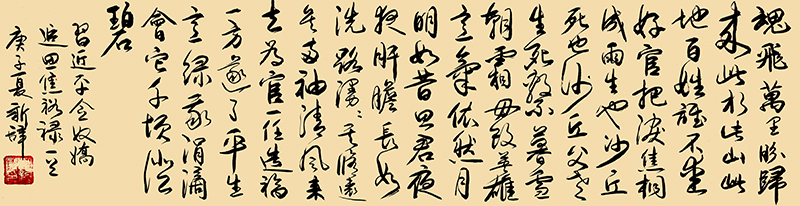 魂飛萬里盼歸
來此水此山此
地百姓誰不愛
好官把淚焦桐
成雨生也沙丘
死也沙丘父老
生死繫暮雪
朝霜毋改英雄
意氣依然月
明如昔思君夜
夜肝膽長如
洗路漫〻其修遠
矣兩袖清風來
去為官一任造福
一方遂了平生
意綠我涓滴
會它千頃澄
碧
習近平念奴嬌
追思焦裕祿一
庚子夏新